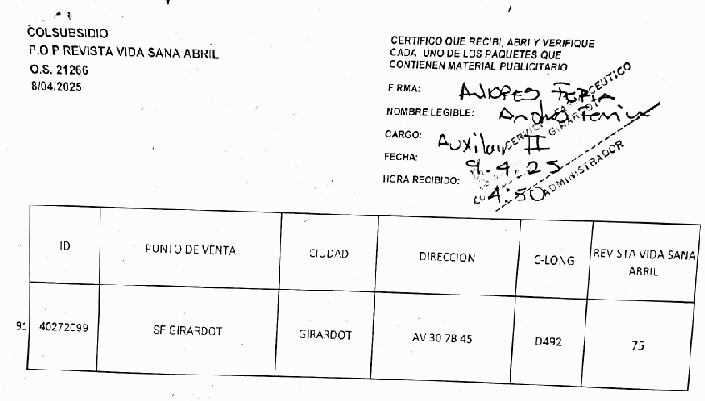 COLSUBSIDIO
P.O.P REVISTA VIDA SANA ABRIL
O.S. 21266
8/04.2025
CERTIFICO QUE RECIBI, ABRI Y VERIFIQUE
CADA UNO DE LOS PAQUETES QUE
CONTIENEN MATERIAL PUBLICITARIO
FIRMA:
NOMBRE LEGIBLE:
CARGO: Auxiliar II
FECHA: 9.4.25
HORA RECIBIDO: 4:50
GIRARDOT
ADMINISTRADOR
ID PUNTO DE VENTA CIUDAD DIRECCION C-LONG REVISTA VIDA SANA
ABRIL
91 40272099 SF GIRARDOT GIRARDOT AV 30 7B 45 D492 75